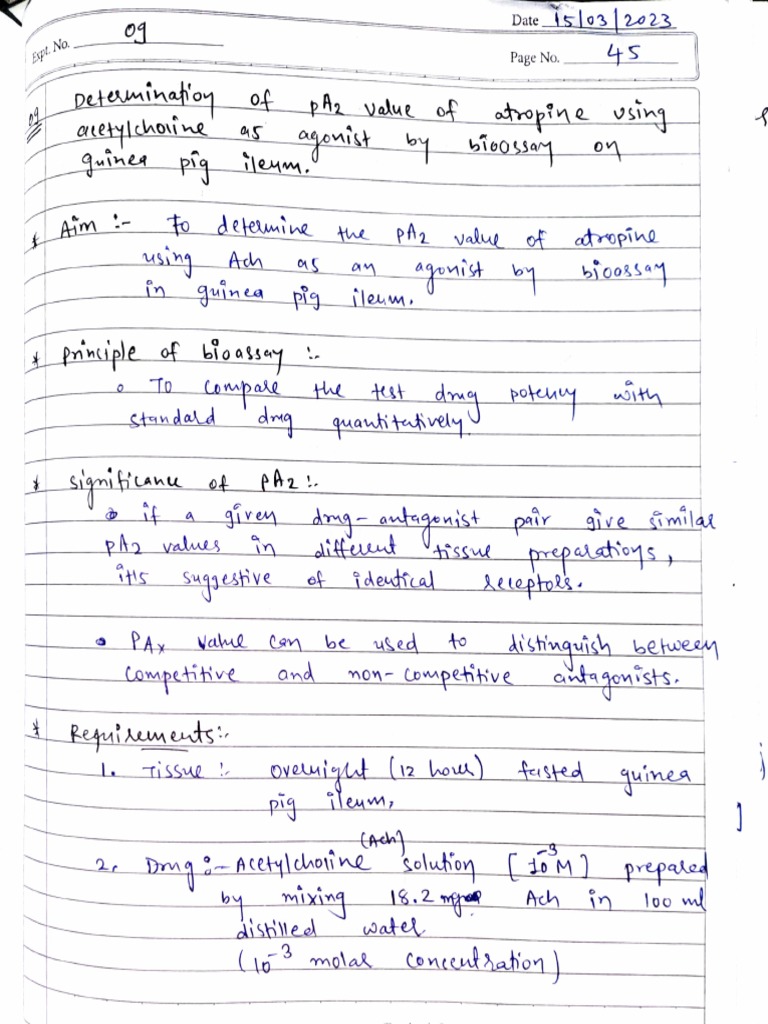 Expt. No. 09
Date 15/03/2023
Page No. 45
09 Determination of pA2 value of atropine using
acetylcholine as agonist by bioassay on
guinea pig ileum.
* Aim :- To determine the pA2 value of atropine
using Ach as an agonist by bioassay
in guinea pig ileum.
* principle of bioassay :-
o To compare the test drug potency with
standard drug quantitatively.
* significance of pA2 :-
• if a given drug-antagonist pair give similar
pA2 values in different tissue preparations,
it's suggestive of identical receptors.
• PAx value can be used to distinguish between
competitive and non-competitive antagonists.
* Requirements :-
1. Tissue :- overnight (12 hour) fasted guinea
pig ileum,
(Ach)
2. Drug :- Acetylcholine solution [10-3 M] prepared
by mixing 18.2 mg Ach in 100 ml
distilled water
(10-3 molar concentration)